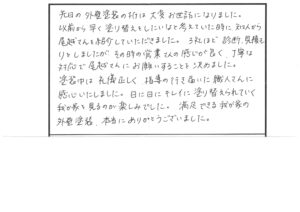 先日の外壁塗装の折は大変お世話になりました。
以前から早く塗り替えをしたいなと考えていた時に知人から
尾越さんを紹介していただきました。3社ほど診断、見積も
りをしましたがその時の営業さんの感じが良く、丁寧な
対応で尾越さんにお願いすることを決めました。
塗装中は礼儀正しく指導の行き届いた職人さんに
感心いたしました。日に日にキレイに塗り替えられていく
我が家を見るのが楽しみでした。満足できる我が家の
外壁塗装、本当にありがとうございました。